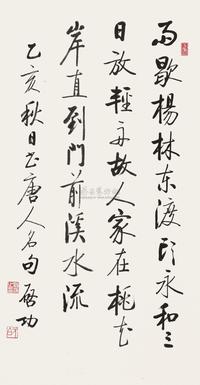 雨歇楊林东渡頭永和三
日放輕舟故人家在桃花
岸直到門前溪水流
乙亥秋日书唐人名句啓功